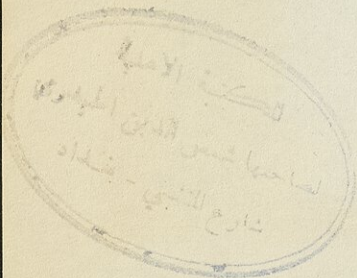 المكتبة الأهلية
لصاحبها شمس الدين الحيدري
شارع المتنبي - بغداد